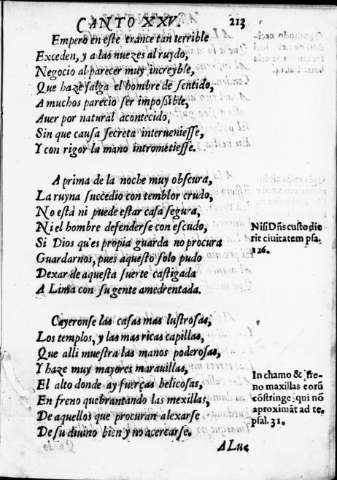 CANTO XXV. 213
Empero en este trance tan terrible
Exceden, y a las vuezes al ruydo,
Negocio al parecer muy increyble,
Que haze salga el hombre de sentido,
A muchos parecio ser impossible,
Auer por natural acontecido,
Sin que causa secreta interueniesse,
Y con rigor la mano intrometiesse.
A prima de la noche muy obscura,
La ruyna succedio con temblor crudo,
No està ni puede estar casa segura,
Ni el hombre defenderse con escudo,
Si Dios qu'es propia guarda no procura
Guardarnos, pues aquesto solo pudo
Dexar de aquesta suerte castigada
A Lima con su gente amedrentada.
Nisi Dñs custodie
rit ciuitatem psa.
126.
Cayeronse las casas mas lustrosas,
Los templos, y las mas ricas capillas,
Que alli muestra las manos poderosas,
Y haze muy mayores marauillas,
El alto donde ay fuerças belicosas,
En freno quebrantando las mexillas,
De aquellos que procuran alexarse
De su diuino bien y no acercarse.
In chamo & fre-
no maxillas eorũ
cõstringe, qui nõ
aproximãt ad te.
psal. 31.
A Luc